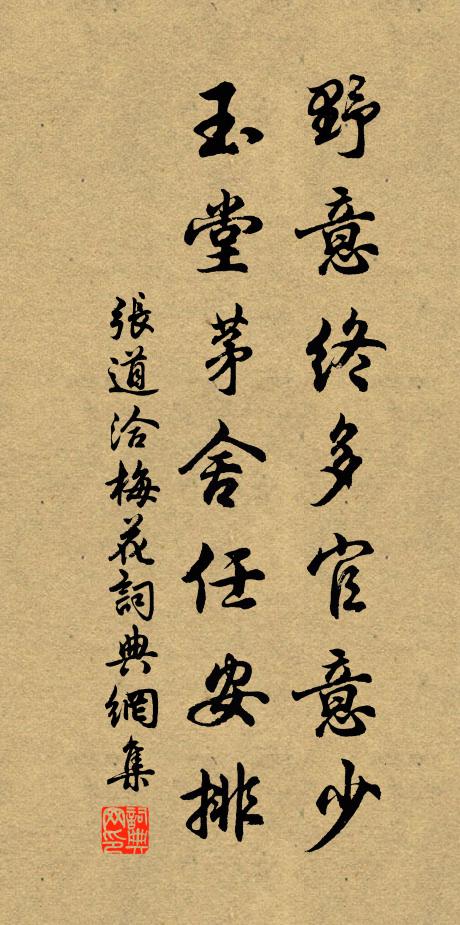 野意終多官意少
玉堂茅舍任安排
張道洽梅花詞典網集
詞典网印